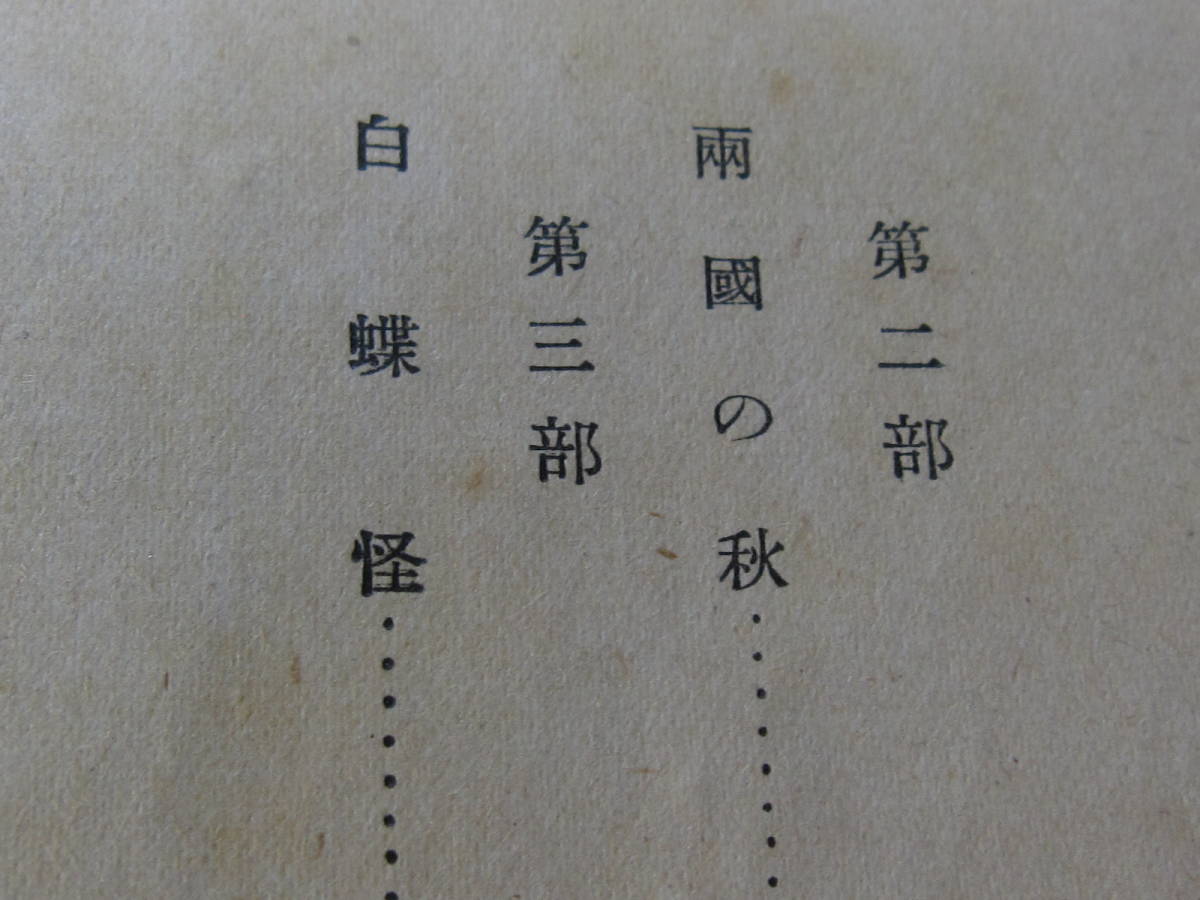 第二部
兩國の秋…………
第三部
白蝶怪…………